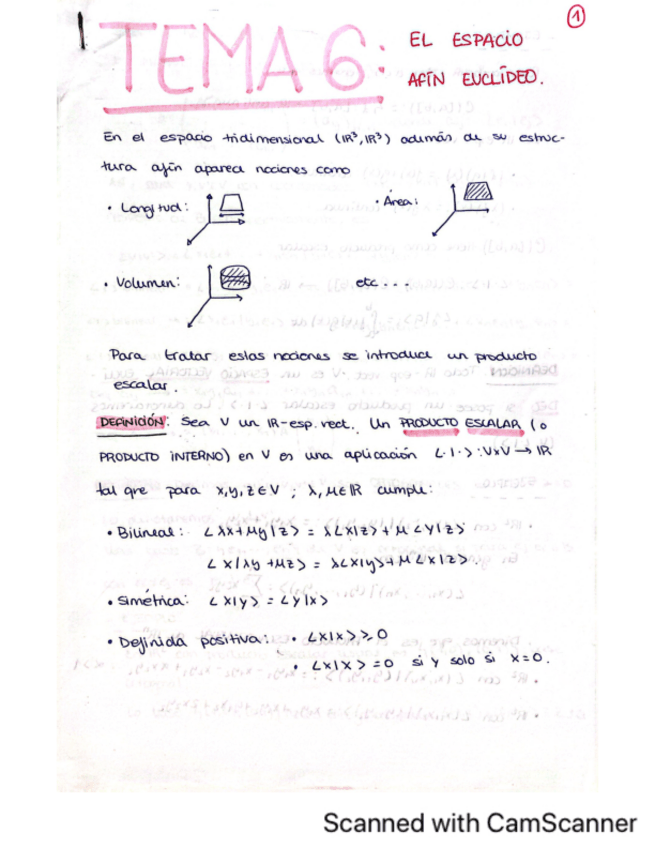 1
TEMA 6: EL ESPACIO
AFÍN EUCLÍDEO.
En el espacio tridimensional (IR³, IR³) además de su estruc-
tura afín aparece nociones como
• Longitud:
• Area:
• Volumen:
etc...
Para tratar estas nociones se introduce un producto
escalar.
DEFINICIÓN: Sea V un IR-esp. vect. Un PRODUCTO ESCALAR (o
PRODUCTO INTERNO) en V es una aplicación <·|·>: V×V → IR
tal que para x,y,z∈V ; λ,μ∈IR cumple:
• Bilineal: <λx+μy|z> = λ<x|z>+μ<y|z>
<x|λy+μz> = λ<x|y>+μ<x|z>.
• Simétrica: <x|y> = <y|x>
• Definida positiva: • <x|x> ≥ 0
• <x|x> = 0 si y solo si x=0.
Scanned with CamScanner